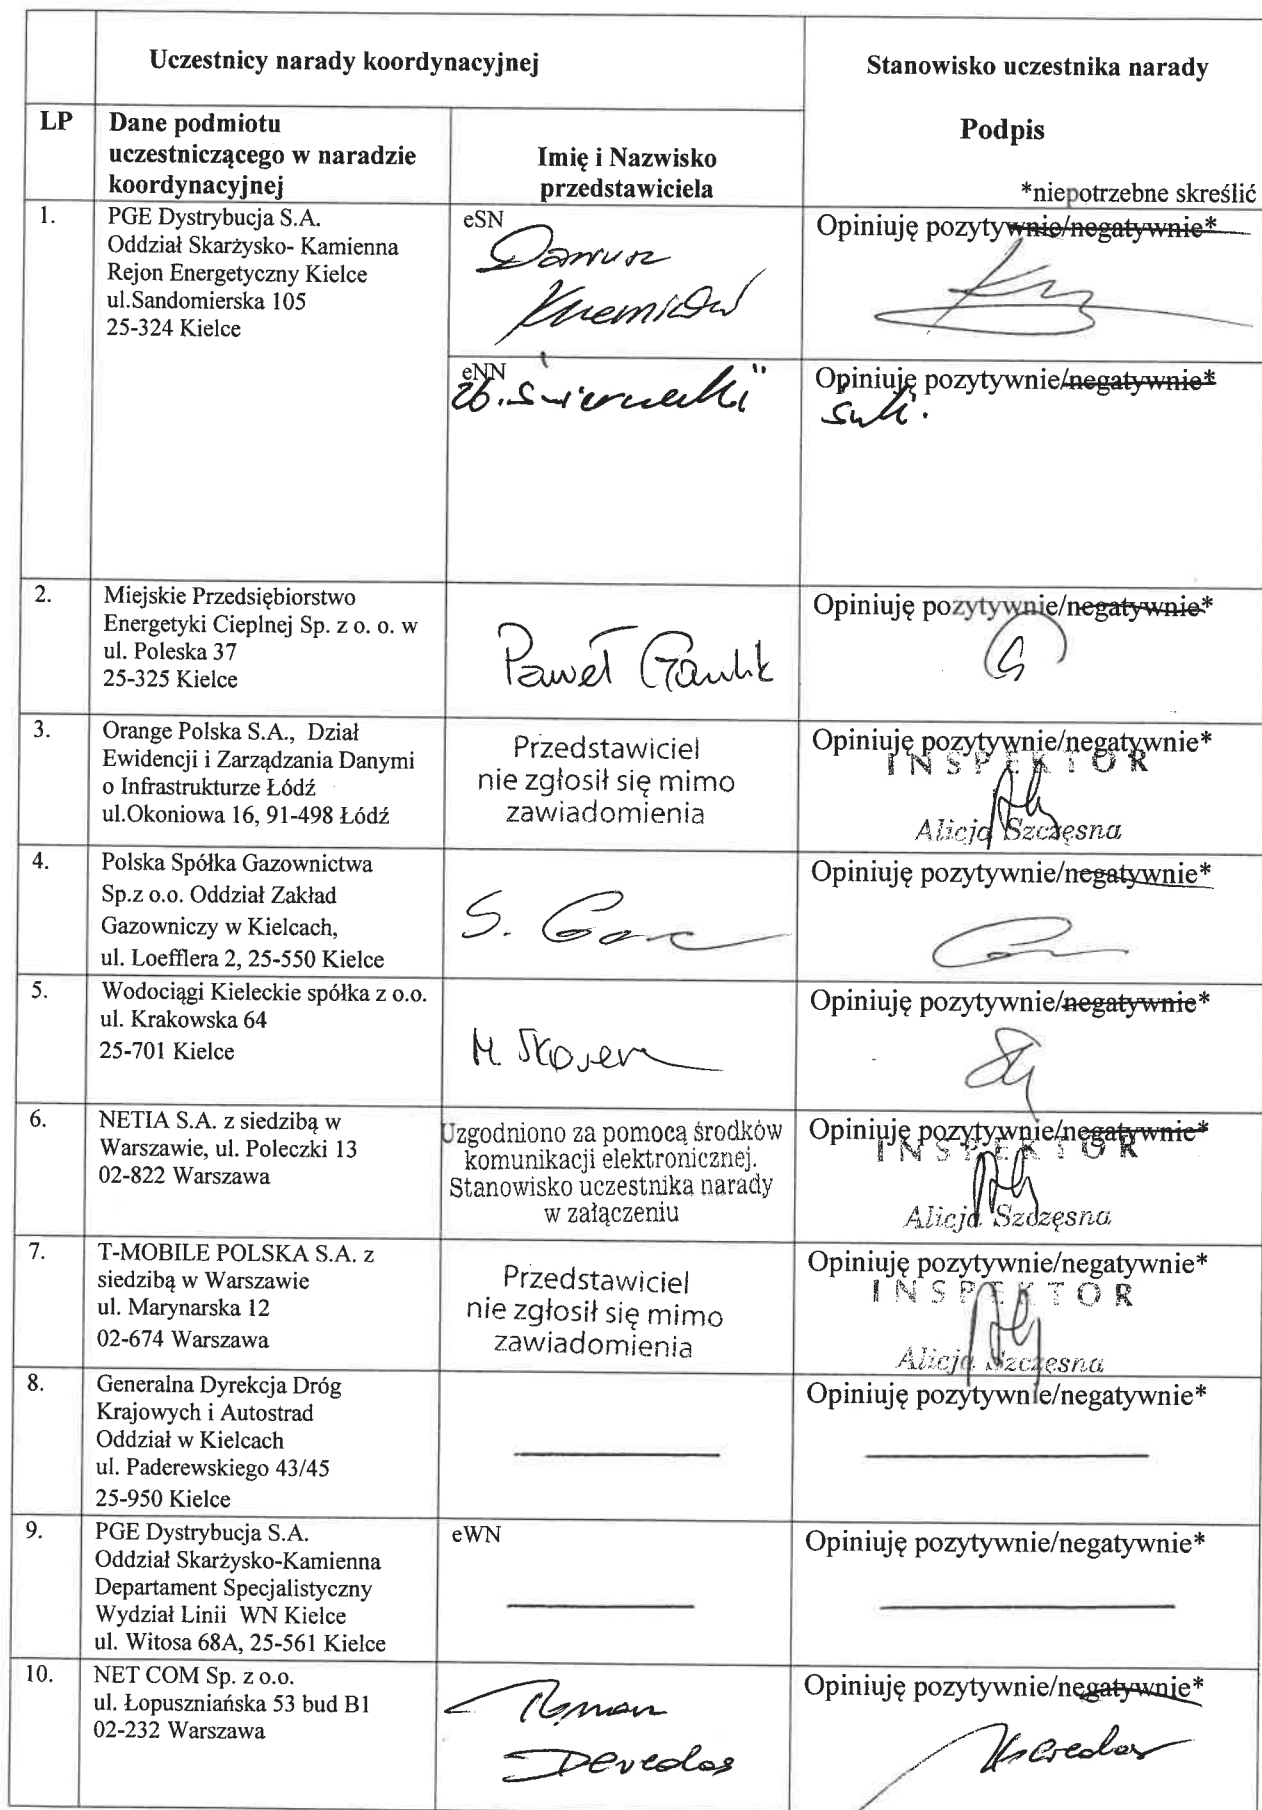 Uczestnicy narady koordynacyjnej
Stanowisko uczestnika narady
Podpis
*niepotrzebne skreślić
LP
Dane podmiotu
uczestniczącego w naradzie
koordynacyjnej
Imię i Nazwisko
przedstawiciela
1.
PGE Dystrybucja S.A.
Oddział Skarżysko- Kamienna
Rejon Energetyczny Kielce
ul.Sandomierska 105
25-324 Kielce
eSN
Dariusz
Opiniuję pozytywnie/negatywnie*
eNN
Opiniuję pozytywnie/negatywnie*
2.
Miejskie Przedsiębiorstwo
Energetyki Cieplnej Sp. z o. o. w
ul. Poleska 37
25-325 Kielce
Paweł Gawlik
Opiniuję pozytywnie/negatywnie*
3.
Orange Polska S.A., Dział
Ewidencji i Zarządzania Danymi
o Infrastrukturze Łódź
ul.Okoniowa 16, 91-498 Łódź
Przedstawiciel
nie zgłosił się mimo
zawiadomienia
Opiniuję pozytywnie/negatywnie*
INSPEKTOR
Alicja Szczęsna
4.
Polska Spółka Gazownictwa
Sp.z o.o. Oddział Zakład
Gazowniczy w Kielcach,
ul. Loefflera 2, 25-550 Kielce
S.
Opiniuję pozytywnie/negatywnie*
5.
Wodociągi Kieleckie spółka z o.o.
ul. Krakowska 64
25-701 Kielce
Opiniuję pozytywnie/negatywnie*
6.
NETIA S.A. z siedzibą w
Warszawie, ul. Poleczki 13
02-822 Warszawa
Uzgodniono za pomocą środków
komunikacji elektronicznej.
Stanowisko uczestnika narady
w załączeniu
Opiniuję pozytywnie/negatywnie*
INSPEKTOR
Alicja Szczęsna
7.
T-MOBILE POLSKA S.A. z
siedzibą w Warszawie
ul. Marynarska 12
02-674 Warszawa
Przedstawiciel
nie zgłosił się mimo
zawiadomienia
Opiniuję pozytywnie/negatywnie*
INSPEKTOR
Alicja Szczęsna
8.
Generalna Dyrekcja Dróg
Krajowych i Autostrad
Oddział w Kielcach
ul. Paderewskiego 43/45
25-950 Kielce
Opiniuję pozytywnie/negatywnie*
9.
PGE Dystrybucja S.A.
Oddział Skarżysko-Kamienna
Departament Specjalistyczny
Wydział Linii WN Kielce
ul. Witosa 68A, 25-561 Kielce
eWN
Opiniuję pozytywnie/negatywnie*
10.
NET COM Sp. z o.o.
ul. Łopuszniańska 53 bud B1
02-232 Warszawa
Roman
Opiniuję pozytywnie/negatywnie*